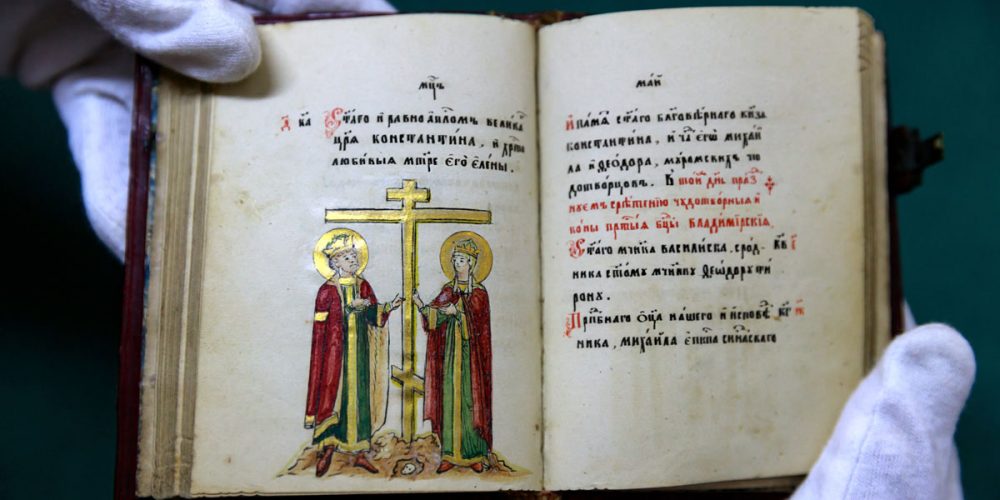 мц҃ъ
д҃ к҃а Ст҃аго и҆ равноап҃ломъ велика
цр҃я константи́на, и҆ хр҃то
любивыѧ мт҃ре є҆гѡ̀ є҆ле́ны.
маі́й
И҆ па́мѧ ст҃а́го благовѣ́рнаго кн҃зѧ
константи́на, и҆ ча̑ є҆гѡ̀ миха́и
ла и҆ ѳео́дора, мꙋромскихъ чю
дотворцовъ. В то́й дн҃ь праз
нꙋемъ срѣ́тенїю чюдотво́рныѧ и҆
ко́ны прч҃тыѧ бц҃ы влади́мїрскїѧ.
Ст҃а́го мч҃ника васили́ска, сро́д- к҃в
ника ст҃о́мꙋ мч҃никꙋ ѳео́дорꙋ ти
ронꙋ.
Прп҃бнаго ѻ҆ц҃а на́шего и҆ и҆сповѣ́ к҃г
ника, миха́ила є҆пк҃па сина́скаго